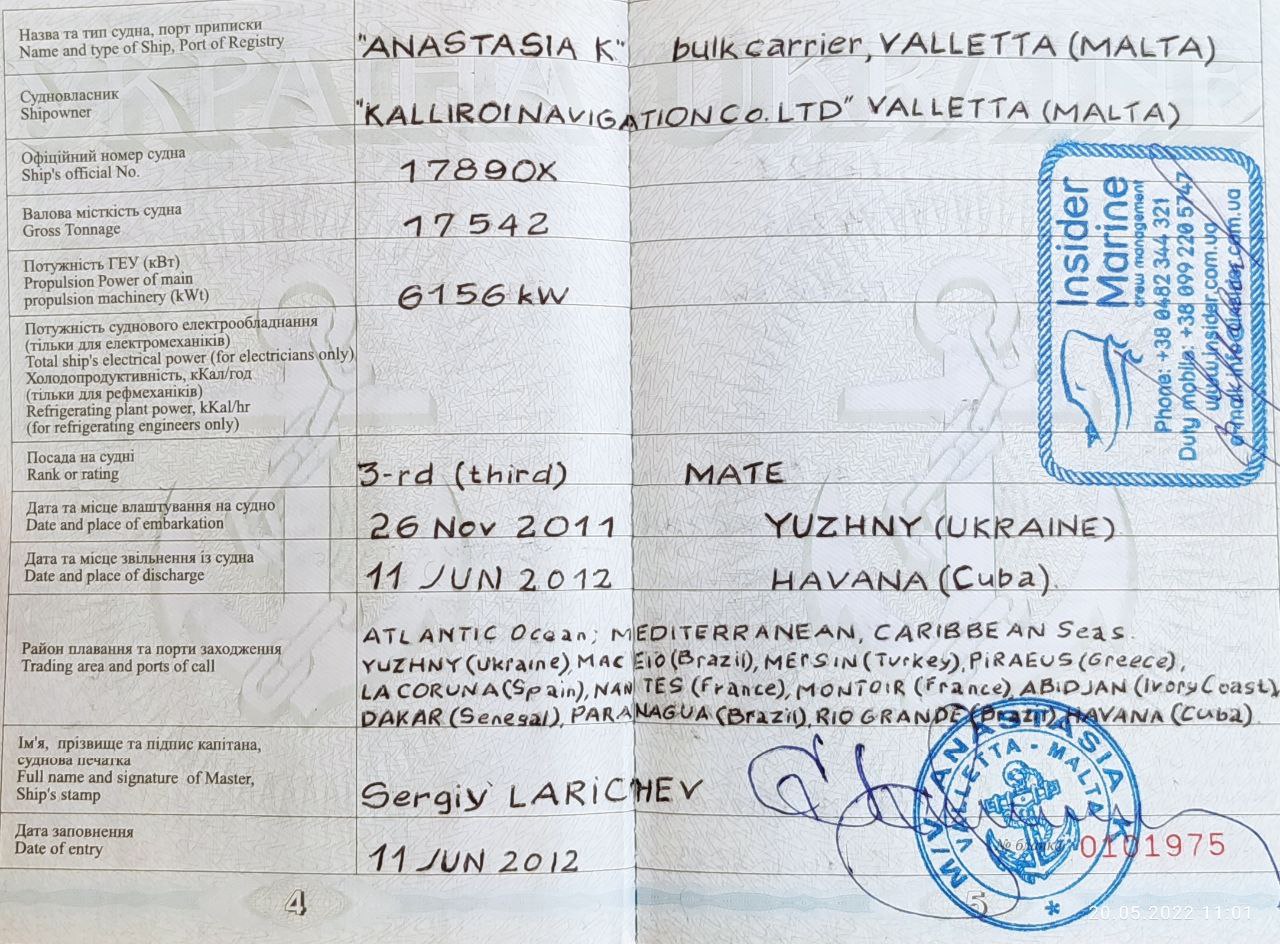 УКРАЇНА UKRAINE
Назва та тип судна, порт приписки
Name and type of Ship, Port of Registry
"ANASTASIA K" bulk carrier, VALLETTA (MALTA)
Судновласник
Shipowner
"KALLIROI NAVIGATION Co. LTD" VALLETTA (MALTA)
Офіційний номер судна
Ship's official No.
17890X
Валова місткість судна
Gross Tonnage
17542
Потужність ГЕУ (кВт)
Propulsion Power of main
propulsion machinery (kWt)
6156 kW
Потужність суднового електрообладнання
(тільки для електромеханіків)
Total ship's electrical power (for electricians only)
Холодопродуктивність, кКал/год
(тільки для рефмеханіків)
Refrigerating plant power, kKal/hr
(for refrigerating engineers only)
Посада на судні
Rank or rating
3-rd (third) MATE
Дата та місце влаштування на судно
Date and place of embarkation
26 Nov 2011 YUZHNY (UKRAINE)
Дата та місце звільнення із судна
Date and place of discharge
11 JUN 2012 HAVANA (Cuba).
Район плавання та порти заходження
Trading area and ports of call
ATLANTIC Ocean; MEDITERRANEAN, CARIBBEAN Seas.
YUZHNY (Ukraine), MACEIO (Brazil), MERSIN (Turkey), PIRAEUS (Greece),
LA CORUNA (Spain), NANTES (France), MONTOIR (France), ABIDJAN (Ivory Coast)
DAKAR (Senegal), PARANAGUA (Brazil), RIO GRANDE (Brazil) HAVANA (Cuba)
Ім'я, прізвище та підпис капітана,
суднова печатка
Full name and signature of Master,
Ship's stamp
Sergiy LARICHEV
Дата заповнення
Date of entry
11 JUN 2012
Insider
Marine
crew management
Phone: +38 0482 344 321
Duty mobile: +38 099 220 5747
www.insider.com.ua
M/V ANASTASIA K
VALLETTA - MALTA
№ бланка 0101975
4
5
20.05.2022 11:01